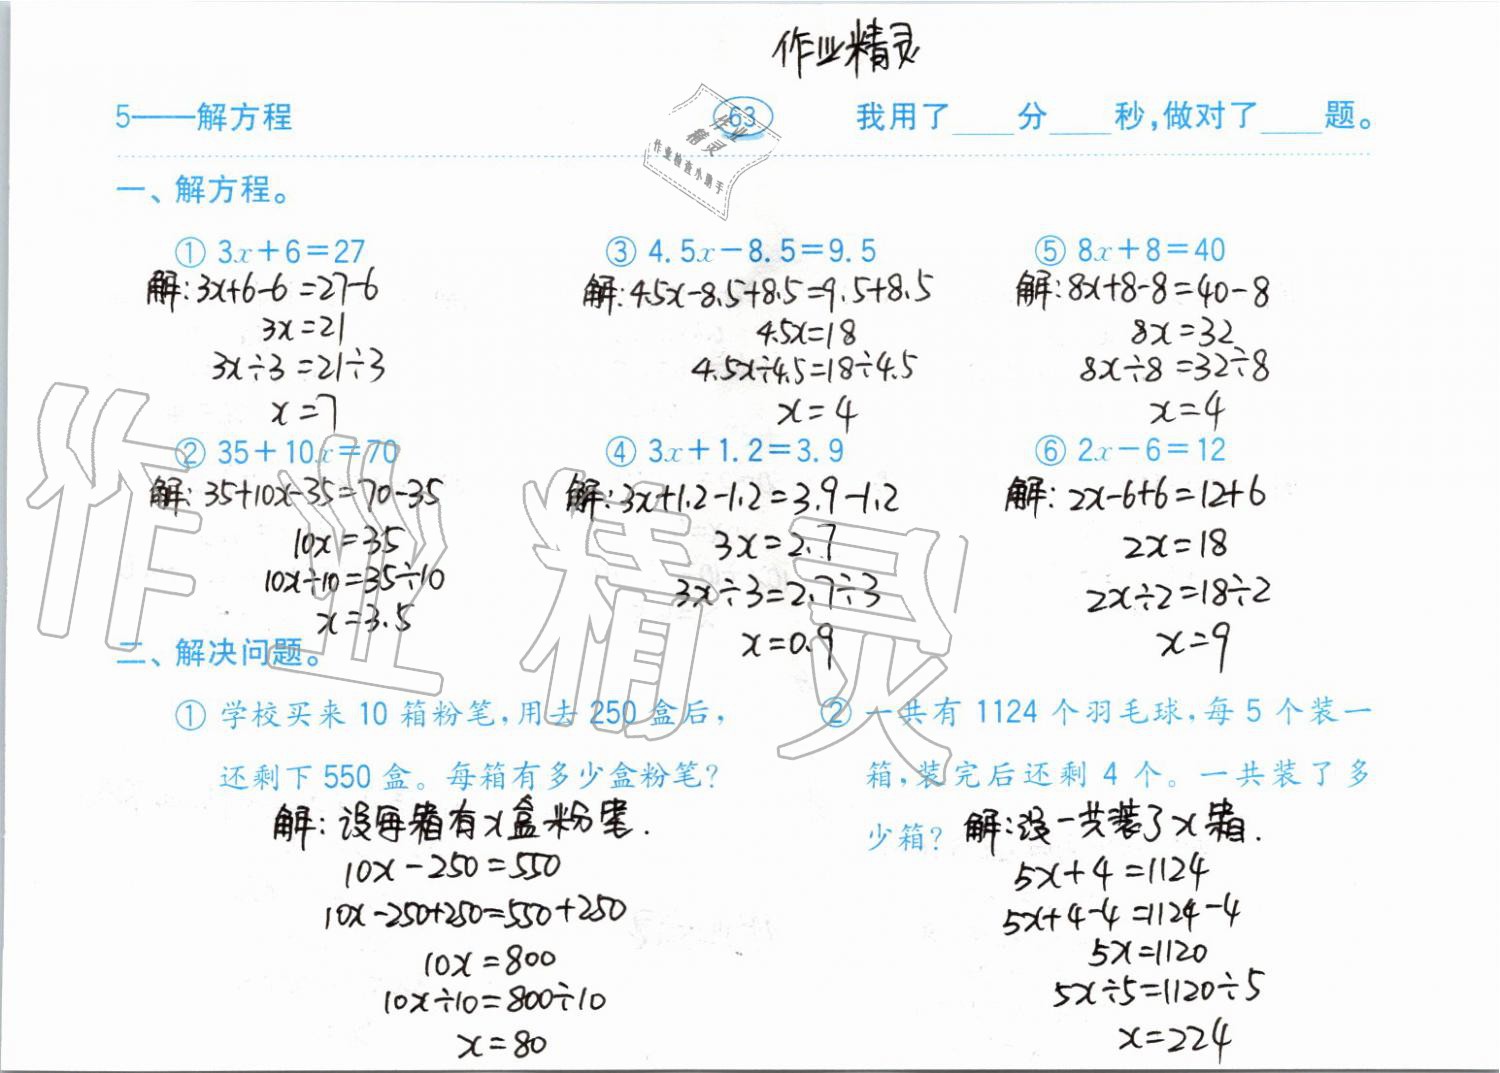 作业精灵
5——解方程
63
我用了____分____秒,做对了____题。
作业
精灵
作业检查小助手
一、解方程。
① 3x+6=27
解:3x+6-6=27-6
3x=21
3x÷3=21÷3
x=7
② 35+10x=70
解:35+10x-35=70-35
10x=35
10x÷10=35÷10
x=3.5
③ 4.5x-8.5=9.5
解:4.5x-8.5+8.5=9.5+8.5
4.5x=18
4.5x÷4.5=18÷4.5
x=4
④ 3x+1.2=3.9
解:3x+1.2-1.2=3.9-1.2
3x=2.7
3x÷3=2.7÷3
x=0.9
⑤ 8x+8=40
解:8x+8-8=40-8
8x=32
8x÷8=32÷8
x=4
⑥ 2x-6=12
解:2x-6+6=12+6
2x=18
2x÷2=18÷2
x=9
作业精灵
二、解决问题。
① 学校买来10箱粉笔,用去250盒后,
还剩下550盒。每箱有多少盒粉笔?
解:设每箱有x盒粉笔.
10x-250=550
10x-250+250=550+250
10x=800
10x÷10=800÷10
x=80
② 一共有1124个羽毛球,每5个装一
箱,装完后还剩4个。一共装了多
少箱?
解:设一共装了x箱.
5x+4=1124
5x+4-4=1124-4
5x=1120
5x÷5=1120÷5
x=224